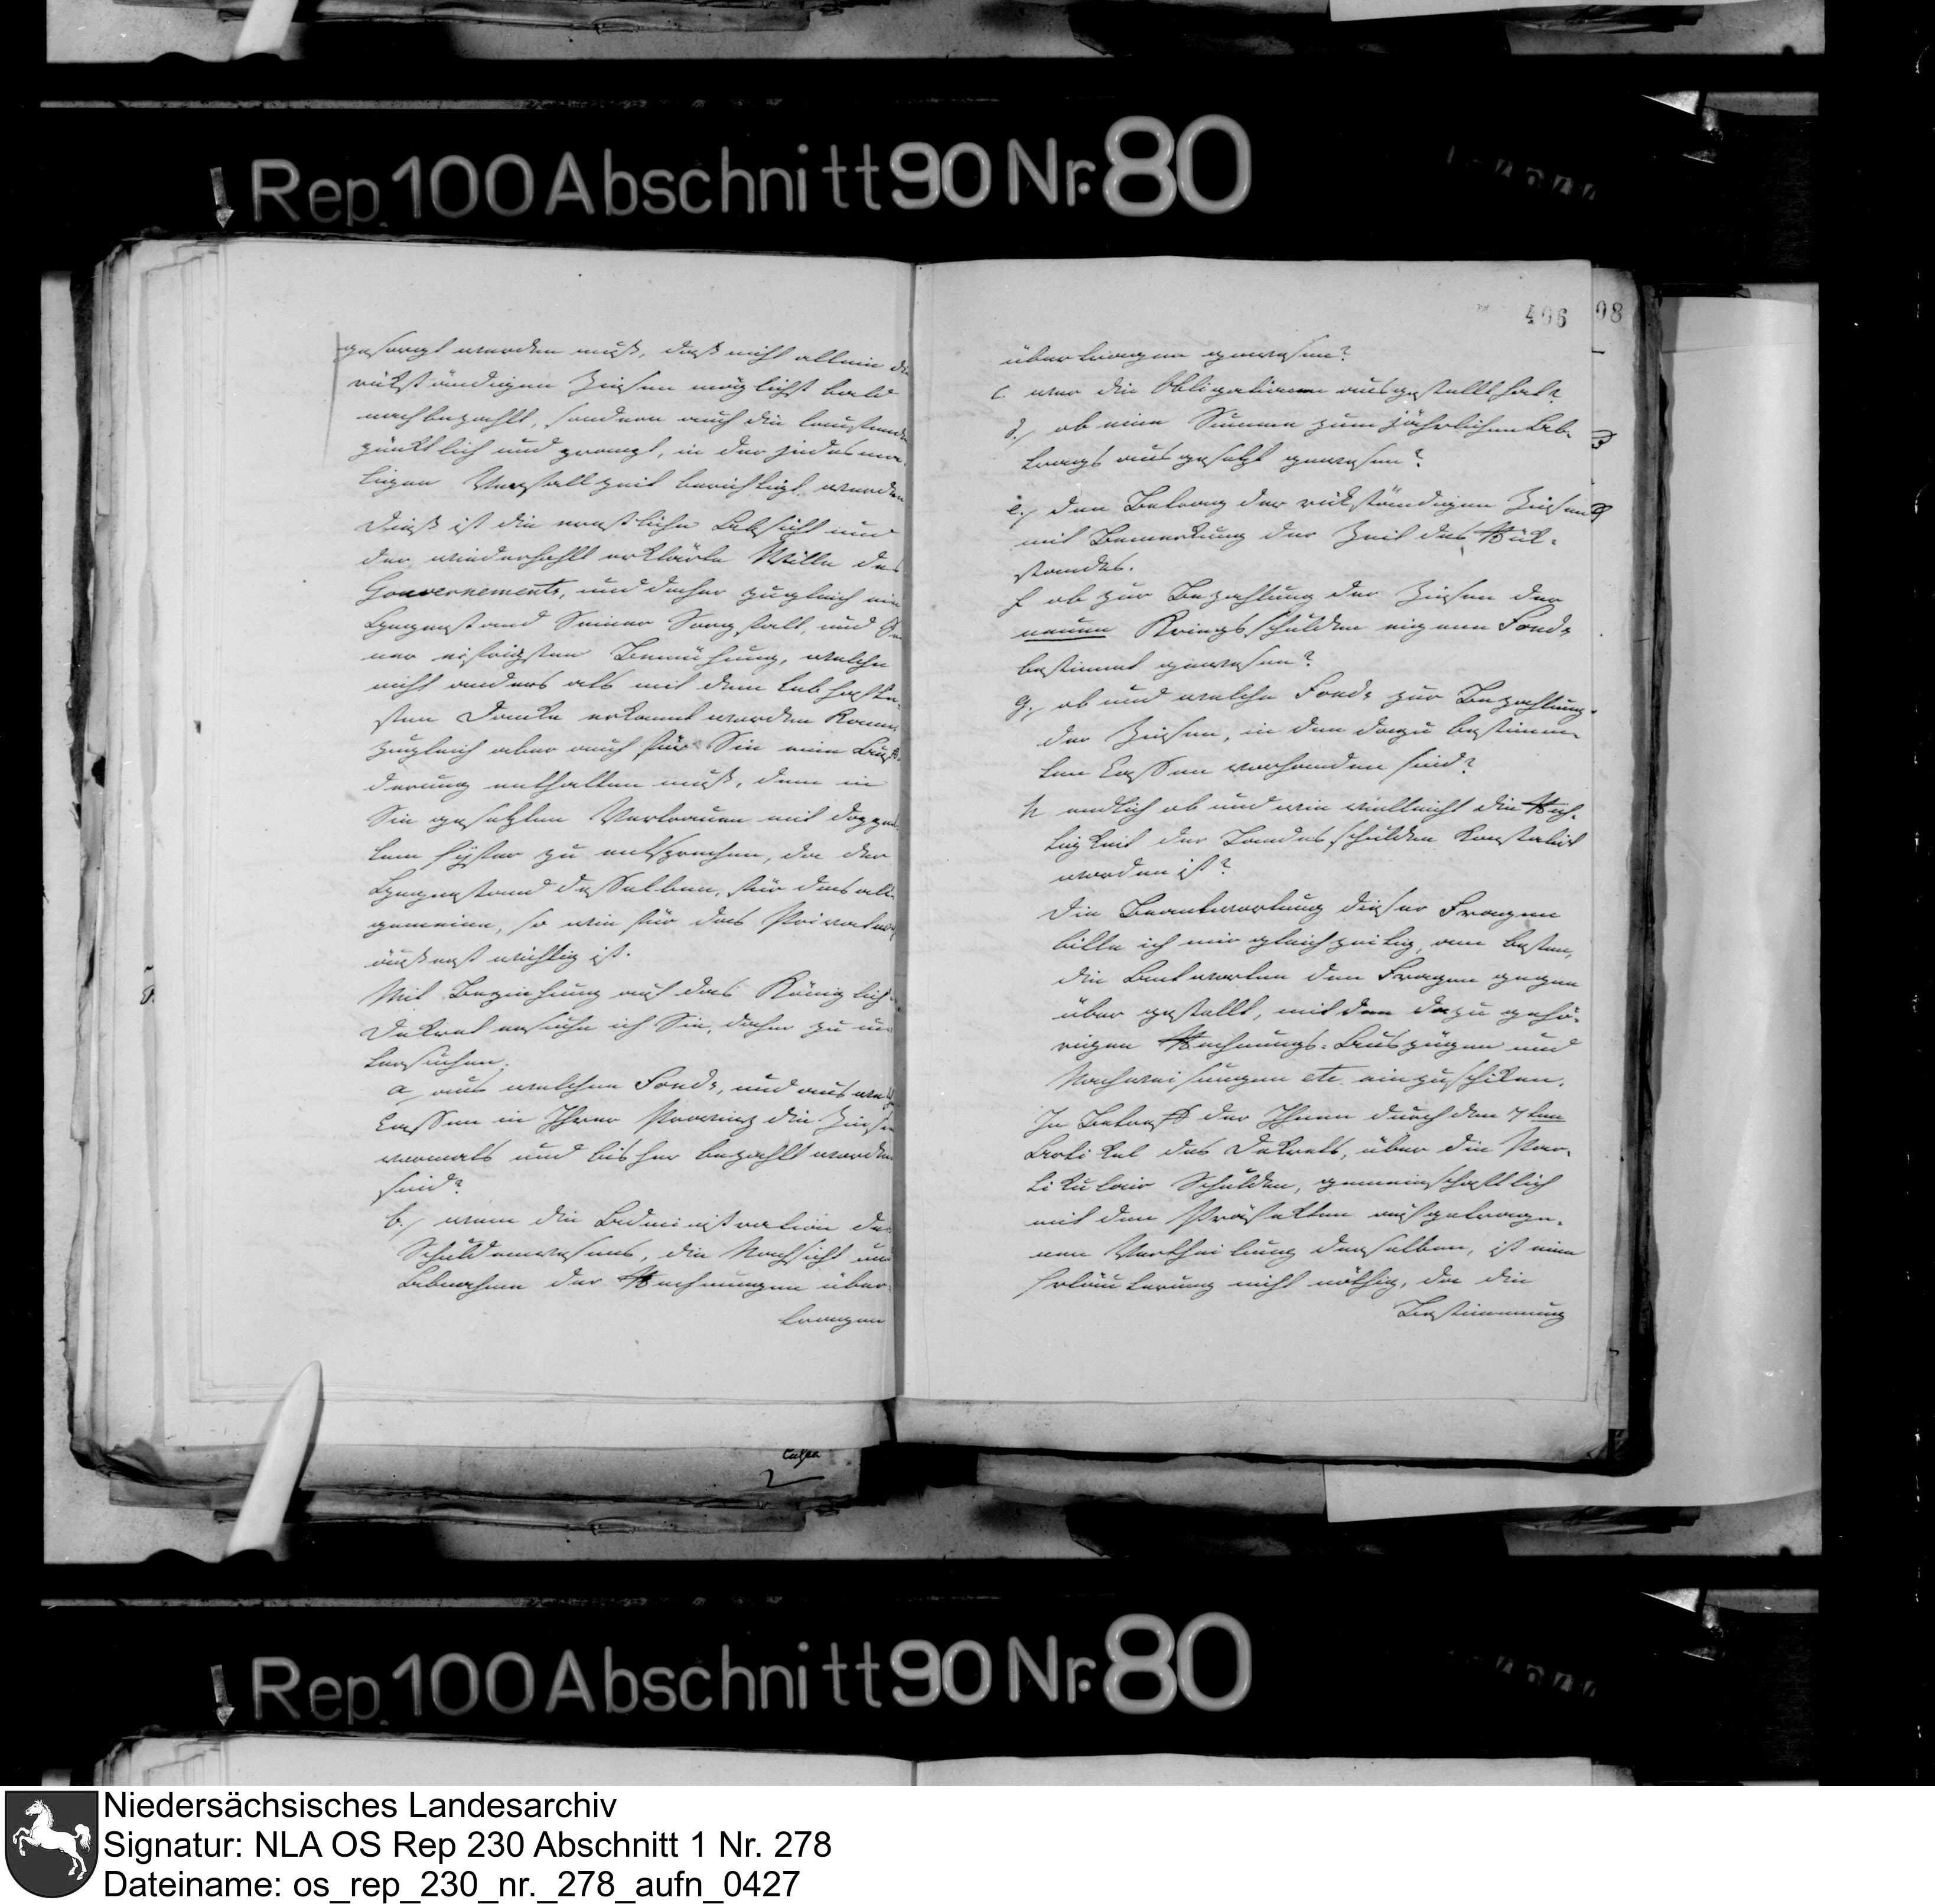 Rep. 100 Abschnitt 90 Nr. 80
gesorgt werden muß, daß nicht allein die
rükständigen Zinsen möglichst bald
nachbezahlt, sondern auch die laufenden
pünktlich und prompt, in der jedesma-
ligen Verfallzeit berichtigt werden
Dieß ist die ernstliche Absicht und
der wiederhohlt erklärte Wille des
Gouvernements, und daher zugleich ein
Gegenstand Seiner Sorgfalt, und
ner eifrigsten Bemühung, welche
nicht anders als mit dem lebhafte-
sten Danke erkannt werden kann,
zugleich aber auch für Sie eine Auffo-
derung enthalten muß, dem in
Sie gesetzten Vertrauen mit doppel-
tem Eifer zu entsprechen, da der
Gegenstand desselben, für das all-
gemeine, so wie für das Privatwohl
äußerst wichtig ist.
Mit Beziehung auf das Königlich
Dekret ersuche ich Sie, daher zu un-
tersuchen.
a aus welchen Fonds, und aus welchen
Cassen in Ihrer Provinz die Zinsen
vormals und bisher bezahlt worden
sind?
b., wem die Administration des
Schuldenwesens, die Nachsicht und
Abnahme der Rechnungen über-
tragen
406
08
übertragen gewesen?
c. wer die Obligationen ausgestellt hat?
d., ob eine Summe zum jährlichen Ab-
trage ausgesetzt gewesen?
e., den Betrag der rükständigen Zinsen
mit Bemerkung der Zeit des Rük-
standes.
f ob zur Bezahlung der Zinsen der
neuen Kriegsschulden eigene Fonds
bestimmt gewesen?
g., ob und welche Fonds zur Bezahlung
der Zinsen, in den dazu bestimm-
ten Cassen vorhanden sind?
h endlich ob und wie vielleicht die Rich-
tigkeit der Landesschulden konstatirt
worden ist?
Die Beantwortung dieser Fragen
bitte ich mir gleichzeitig, am besten,
die Antworten den Fragen gegen
über gestellt, mit den dazu gehö-
rigen Rechnungs-Auszügen und
Nachweisungen etc. einzuschiken.
In Betreff der Ihnen durch den 7ten
Artikel des Dekrets, über die Par-
tikulair Schulden, gemeinschaftlich
mit den Präfekten aufgetrage-
nen Vertheilung derselben, ist eine
Erläuterung nicht nöthig, da die
Bestimmung
Rep. 100 Abschnitt 90 Nr. 80
Niedersächsisches Landesarchiv
Signatur: NLA OS Rep 230 Abschnitt 1 Nr. 278
Dateiname: os_rep_230_nr._278_aufn_0427